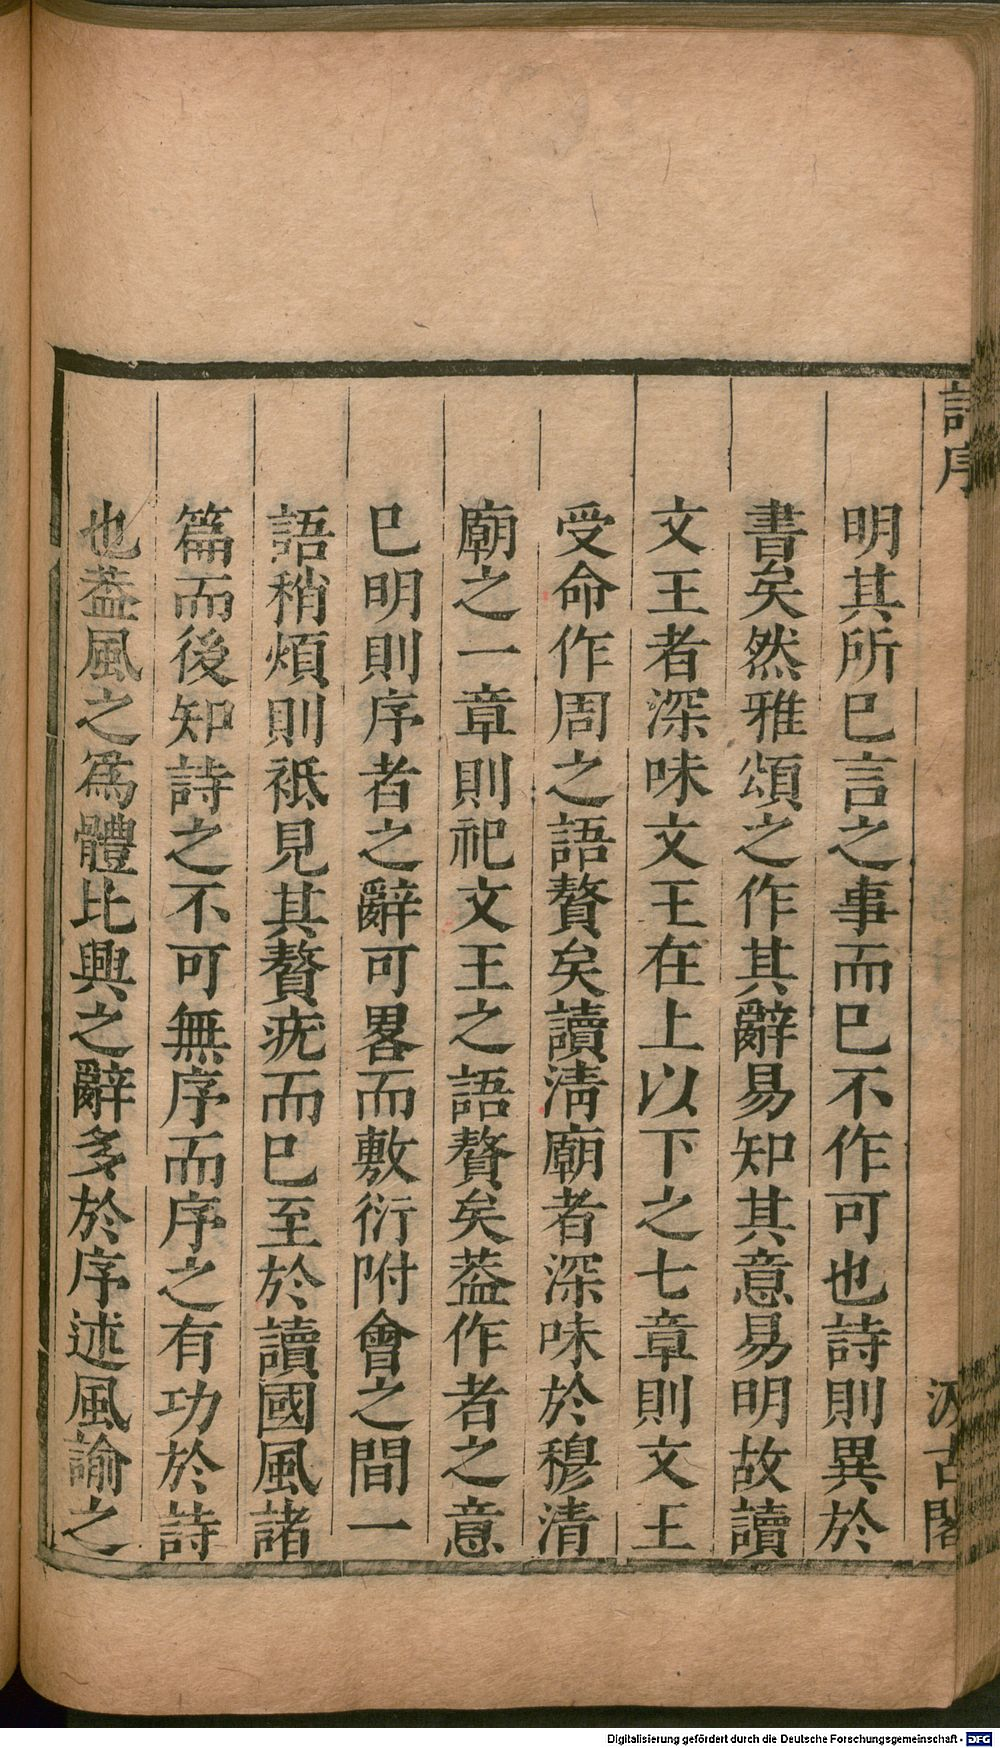 詩序
汲古閣
明其所巳言之事而巳不作可也詩則異於
書矣然雅頌之作其辭易知其意易明故讀
文王者深味文王在上以下之七章則文王
受命作周之語贅矣讀清廟者深味於穆清
廟之一章則祀文王之語贅矣葢作者之意
巳明則序者之辭可畧而敷衍附會之間一
語稍煩則祗見其贅疣而巳至於讀國風諸
篇而後知詩之不可無序而序之有功於詩
也葢風之爲體比興之辭多於序述風諭之
Digitalisierung gefördert durch die Deutsche Forschungsgemeinschaft - DFG